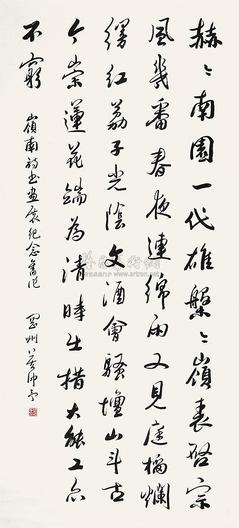 赫〻南園一代雄盤〻嶺表啓宗
風幾番春夜連綿雨又見庭橘爛
縵紅荔子光陰文酒會騷壇山斗古
今崇蓮花端為清時出措大能工亦
不窮
嶺南詩書畫展紀念舊作
州莫仲予